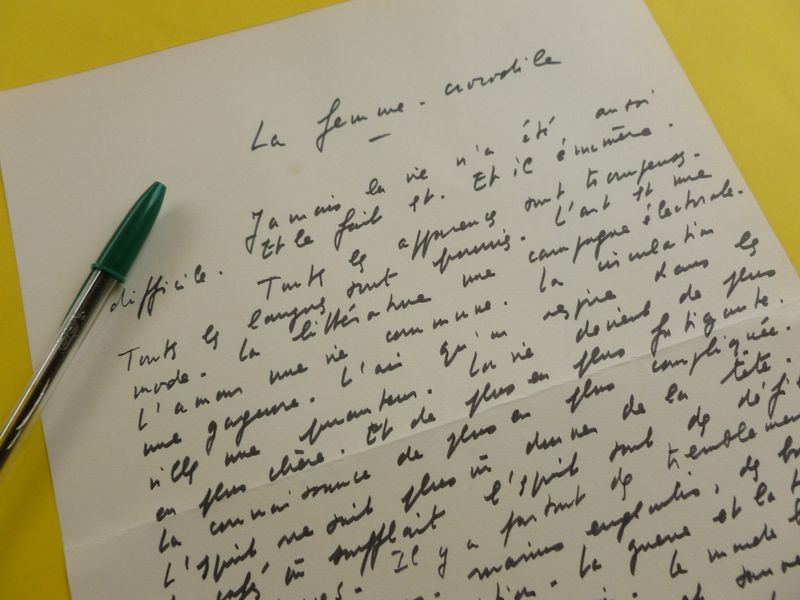 La femme-crocodile
Jamais la vie n'a été aussi
difficile. Et le fait est. Et il énumère.
Toutes les apparences sont trompeuses.
Toutes les langues sont pourries. L'art est une
mode. La littérature une campagne électorale.
L'amour une vie commune. La circulation
une gageure. L'air qu'on respire dans les
villes une puanteur. La vie devient de plus
en plus chère. Et de plus en plus fatigante.
La connaissance de plus en plus compliquée.
L'esprit ne sait plus où donner de la tête.
où soufflait l'esprit sont de
Il y a partout de tremblements
marins engloutis, de
La guerre et la
Le monde